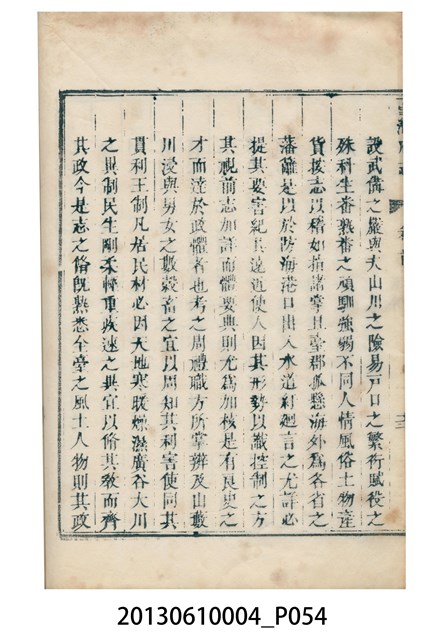 設武備之嚴與夫山川之險易戶口之繁衍賦役之
殊科生番熟番之頑馴強弱不同人情風俗土物產
貨按志以稽如指諸掌且臺郡孤懸海外為各省之
藩籬是以於防海港口出入水道紆廻言之尤詳必
提其要害紀其遠近使人因其形勢以識控制之方
其視前志加詳而體要典則尤為加核是有良史之
才而達於政體者也考之周禮職方所掌辨及山藪
川浸與男女之數穀畜之宜以周知其利害使同其
貫利王制凡居民材必因天地寒暖燥濕廣谷大川
之異制民生剛柔輕重疾速之異宜以脩其教而齊
其政今是志之脩旣熟悉全臺之風土人物則其政
20130610004_P054